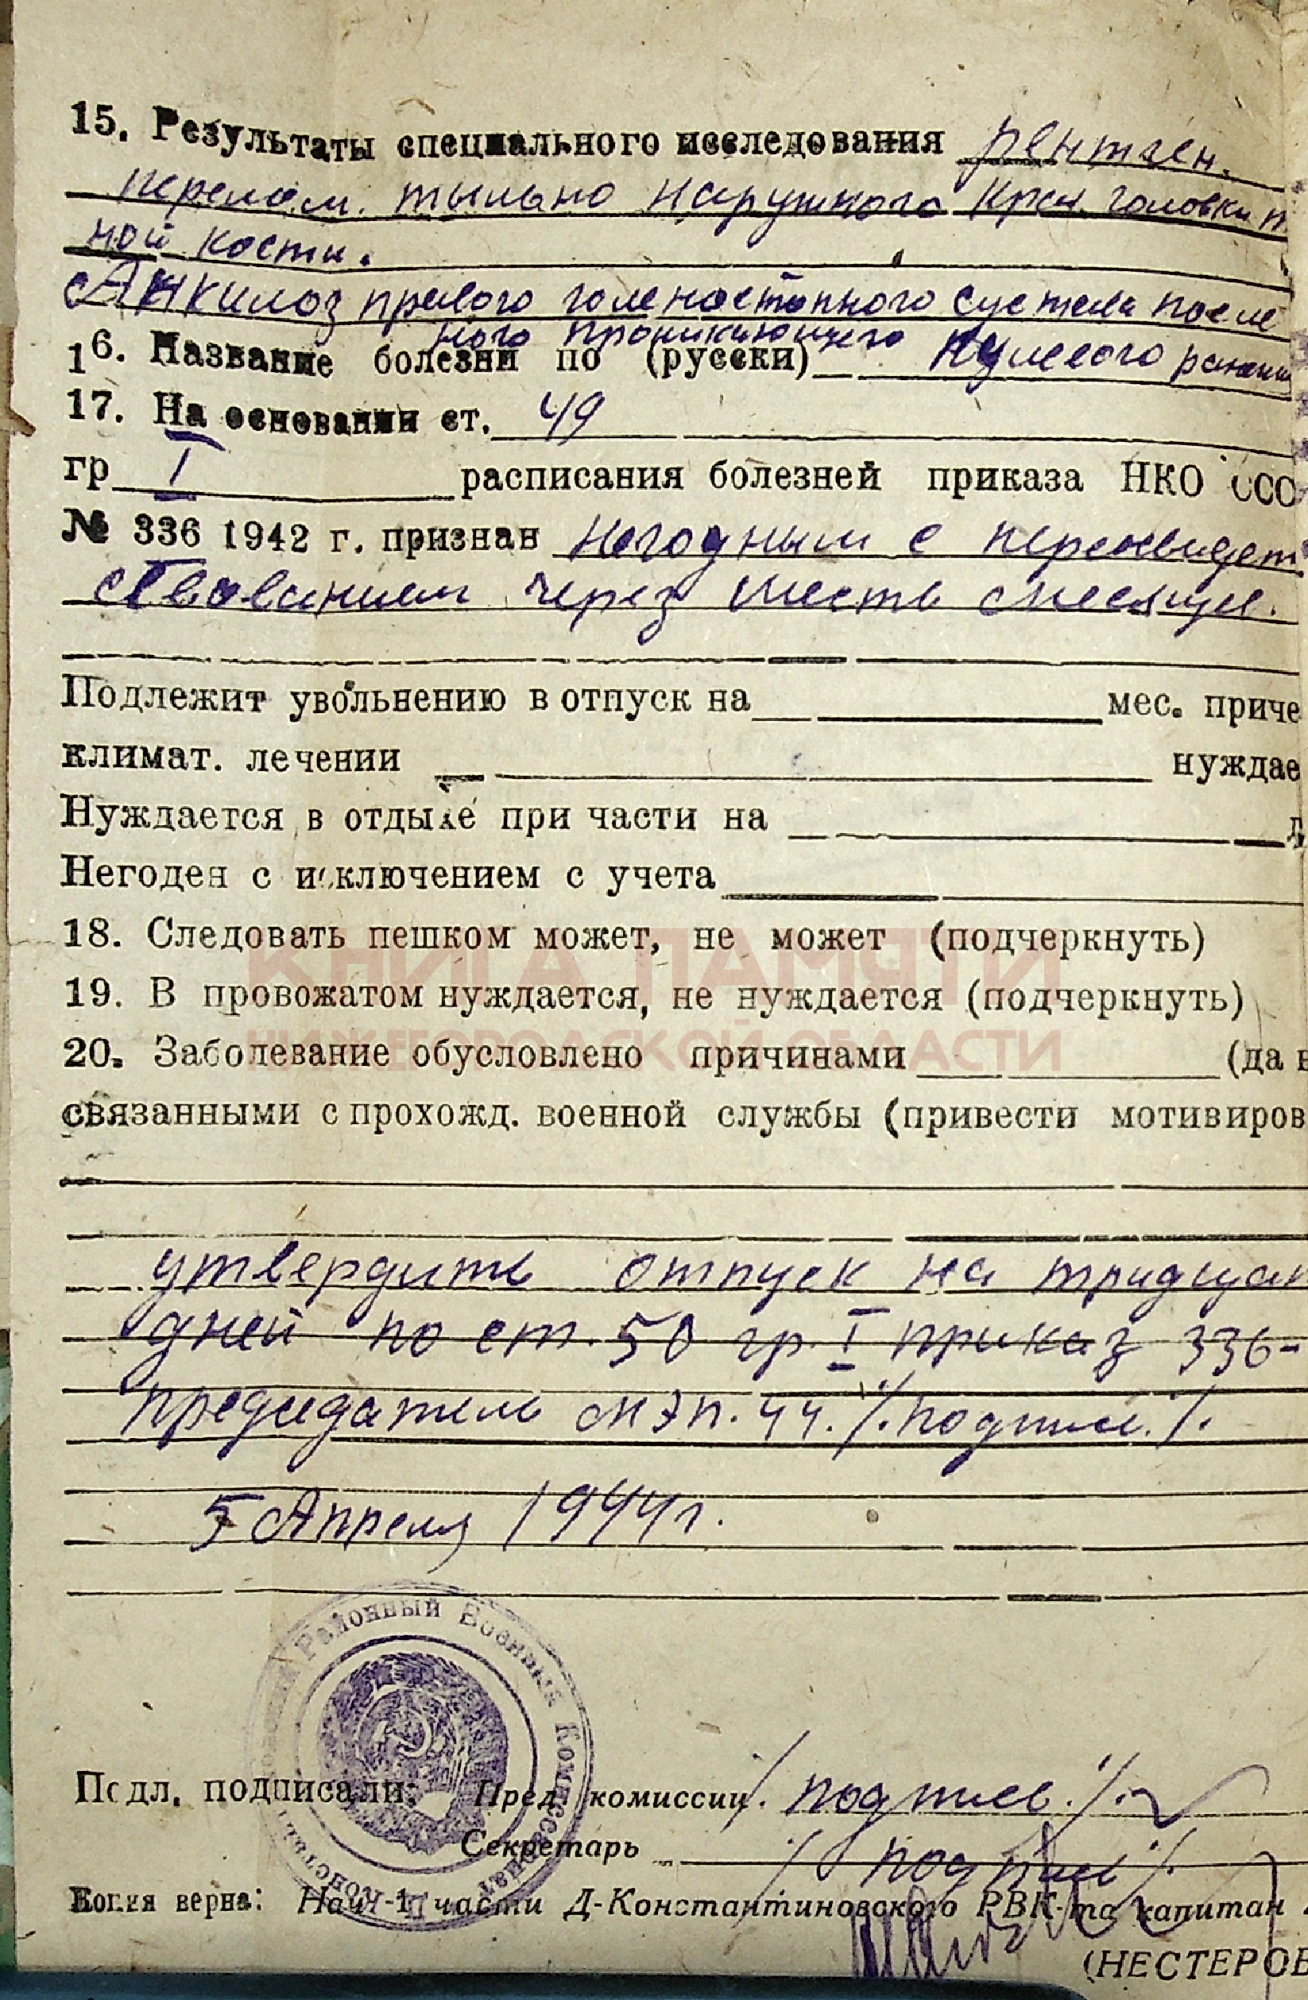 15. Результаты специального исследования рентген.
перелом. тыльно наружного края головки т
ной кости.
Анкилоз правого голеностопного сустава после
ного проникающего
16. Название болезни по (русски) пулевого ранения
17. На основании ст. 49
гр I расписания болезней приказа НКО ССС
№ 336 1942 г. признан негодным с переосвидет
ствованием через шесть месяцев.
Подлежит увольнению в отпуск на мес. приче
климат. лечении нуждае
Нуждается в отдыхе при части на д
Негоден с исключением с учета
18. Следовать пешком может, не может (подчеркнуть)
КНИГА ПАМЯТИ
19. В провожатом нуждается, не нуждается (подчеркнуть)
НИЖЕГОРОДСКОЙ ОБЛАСТИ
20. Заболевание обусловлено причинами (да н
связанными с прохожд. военной службы (привести мотивиров
утвердить отпуск на тридцат
дней по ст. 50 гр. I приказ 336-
председатель МЭП. 44. /. подпись. /.
5 Апреля 1944 г.
Районный Военный Комиссариат
Подл. подписали: Пред. комиссии /. подпись. /.
Секретарь /. подпись /.
Копия верна: Нач-1 части Д-Константиновского РВК-та капитан
(НЕСТЕРОВ